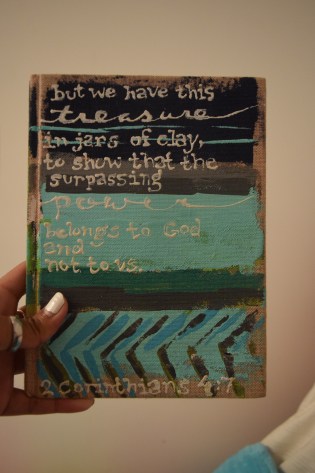 but we have this
treasure
in jars of clay,
to show that the
surpassing
power
belongs to God
and
not to us.
2 Corinthians 4:7